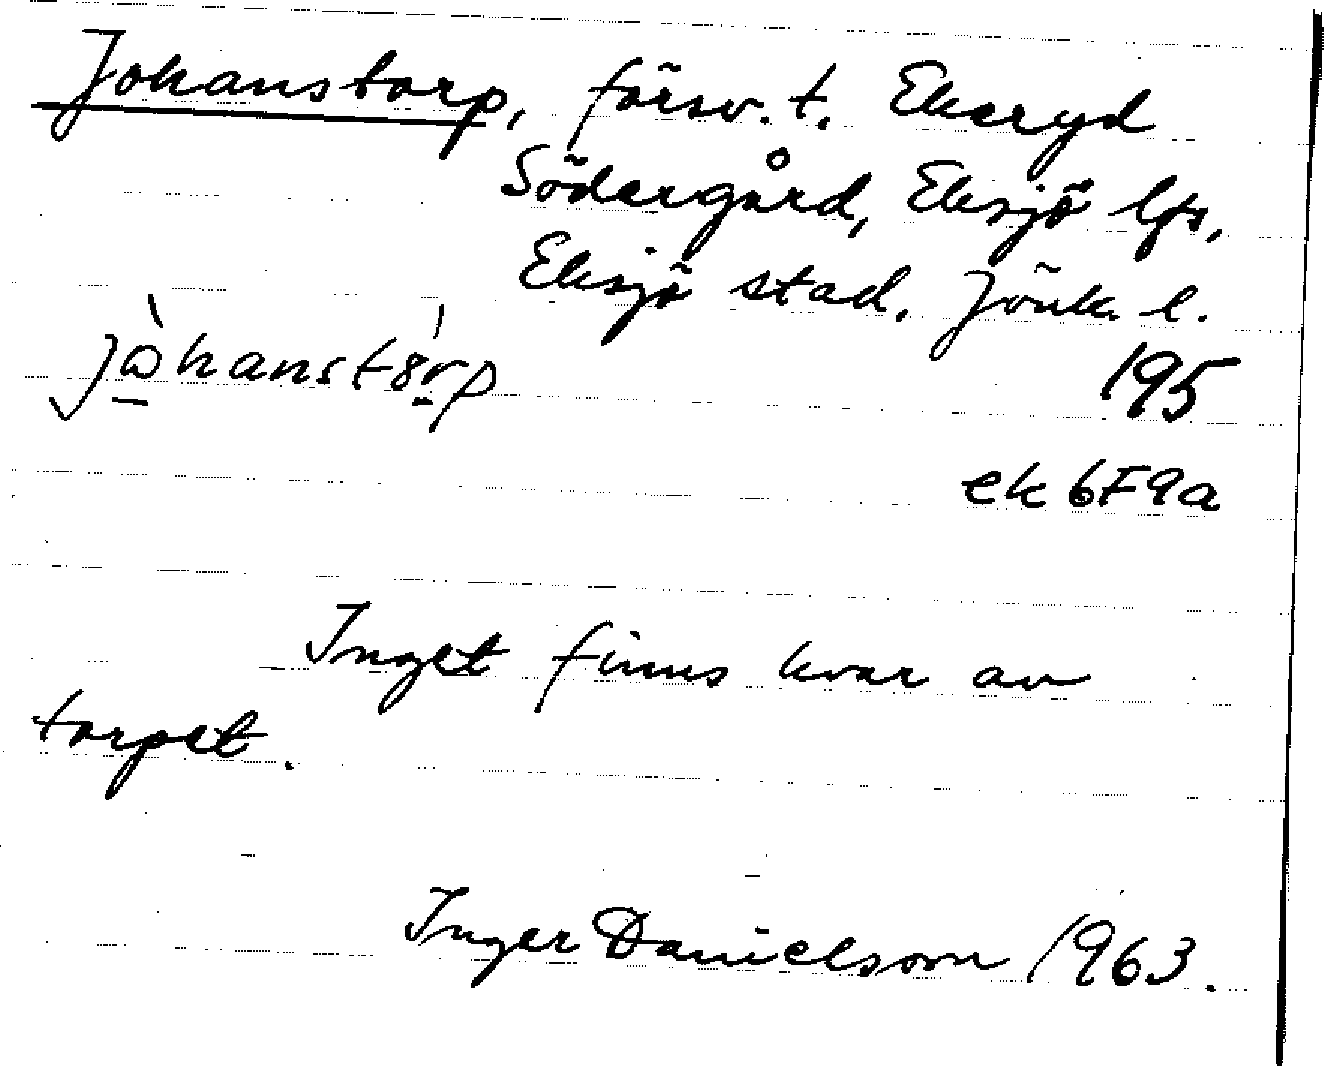 Johanstorp, försv. t. Ekeryd
Södergård, Eksjö lfs,
Eksjö stad. Jönk. l.
195
ek 6F9a
Inget finns kvar av
torpet.
Inger Danielsson 1963.